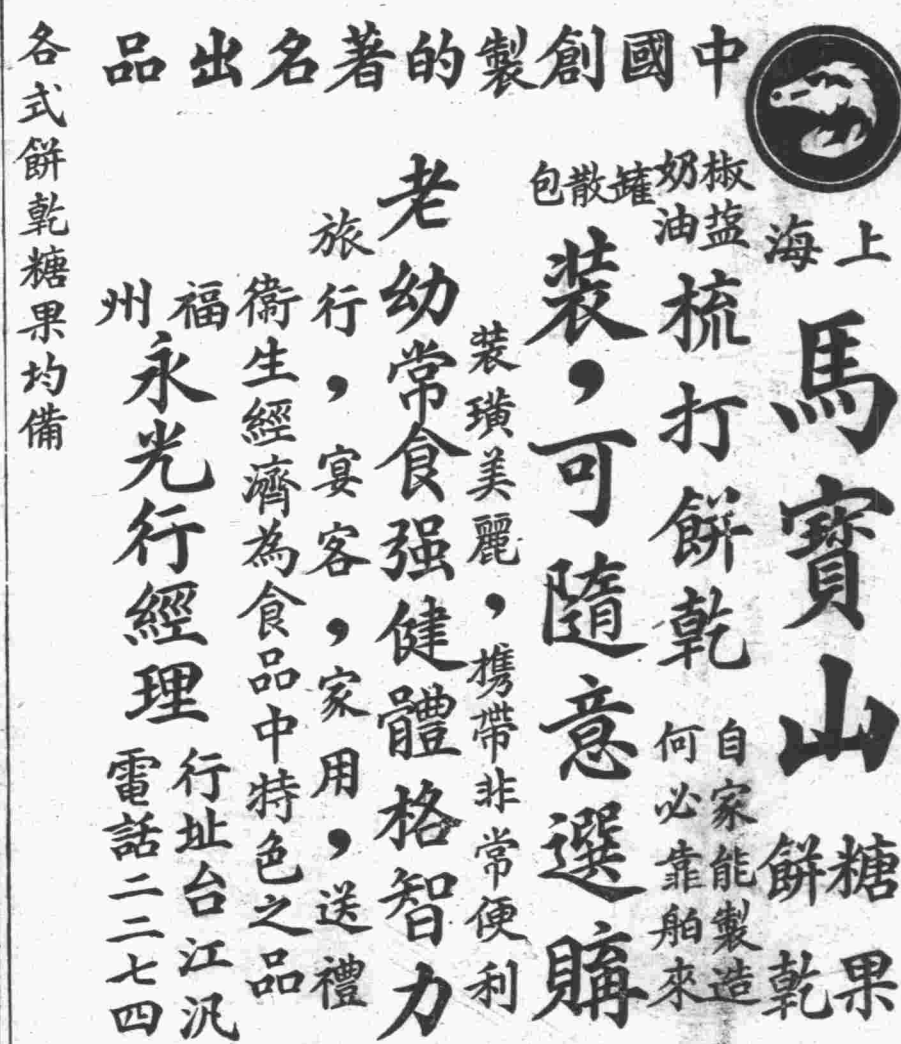 中國創製的著名出品
上海
馬寶山
糖果
餅乾
椒盐
奶油
梳打餅乾
自家能製造
何必靠舶來
罐散包
装，可隨意選購
装璜美麗，携帶非常便利
老幼常食强健體格智力
旅行，宴客，家用，送禮
衛生經濟為食品中特色之品
福州
永光行經理
行址台江汎
電話二二七四
各式餅乾糖果均備